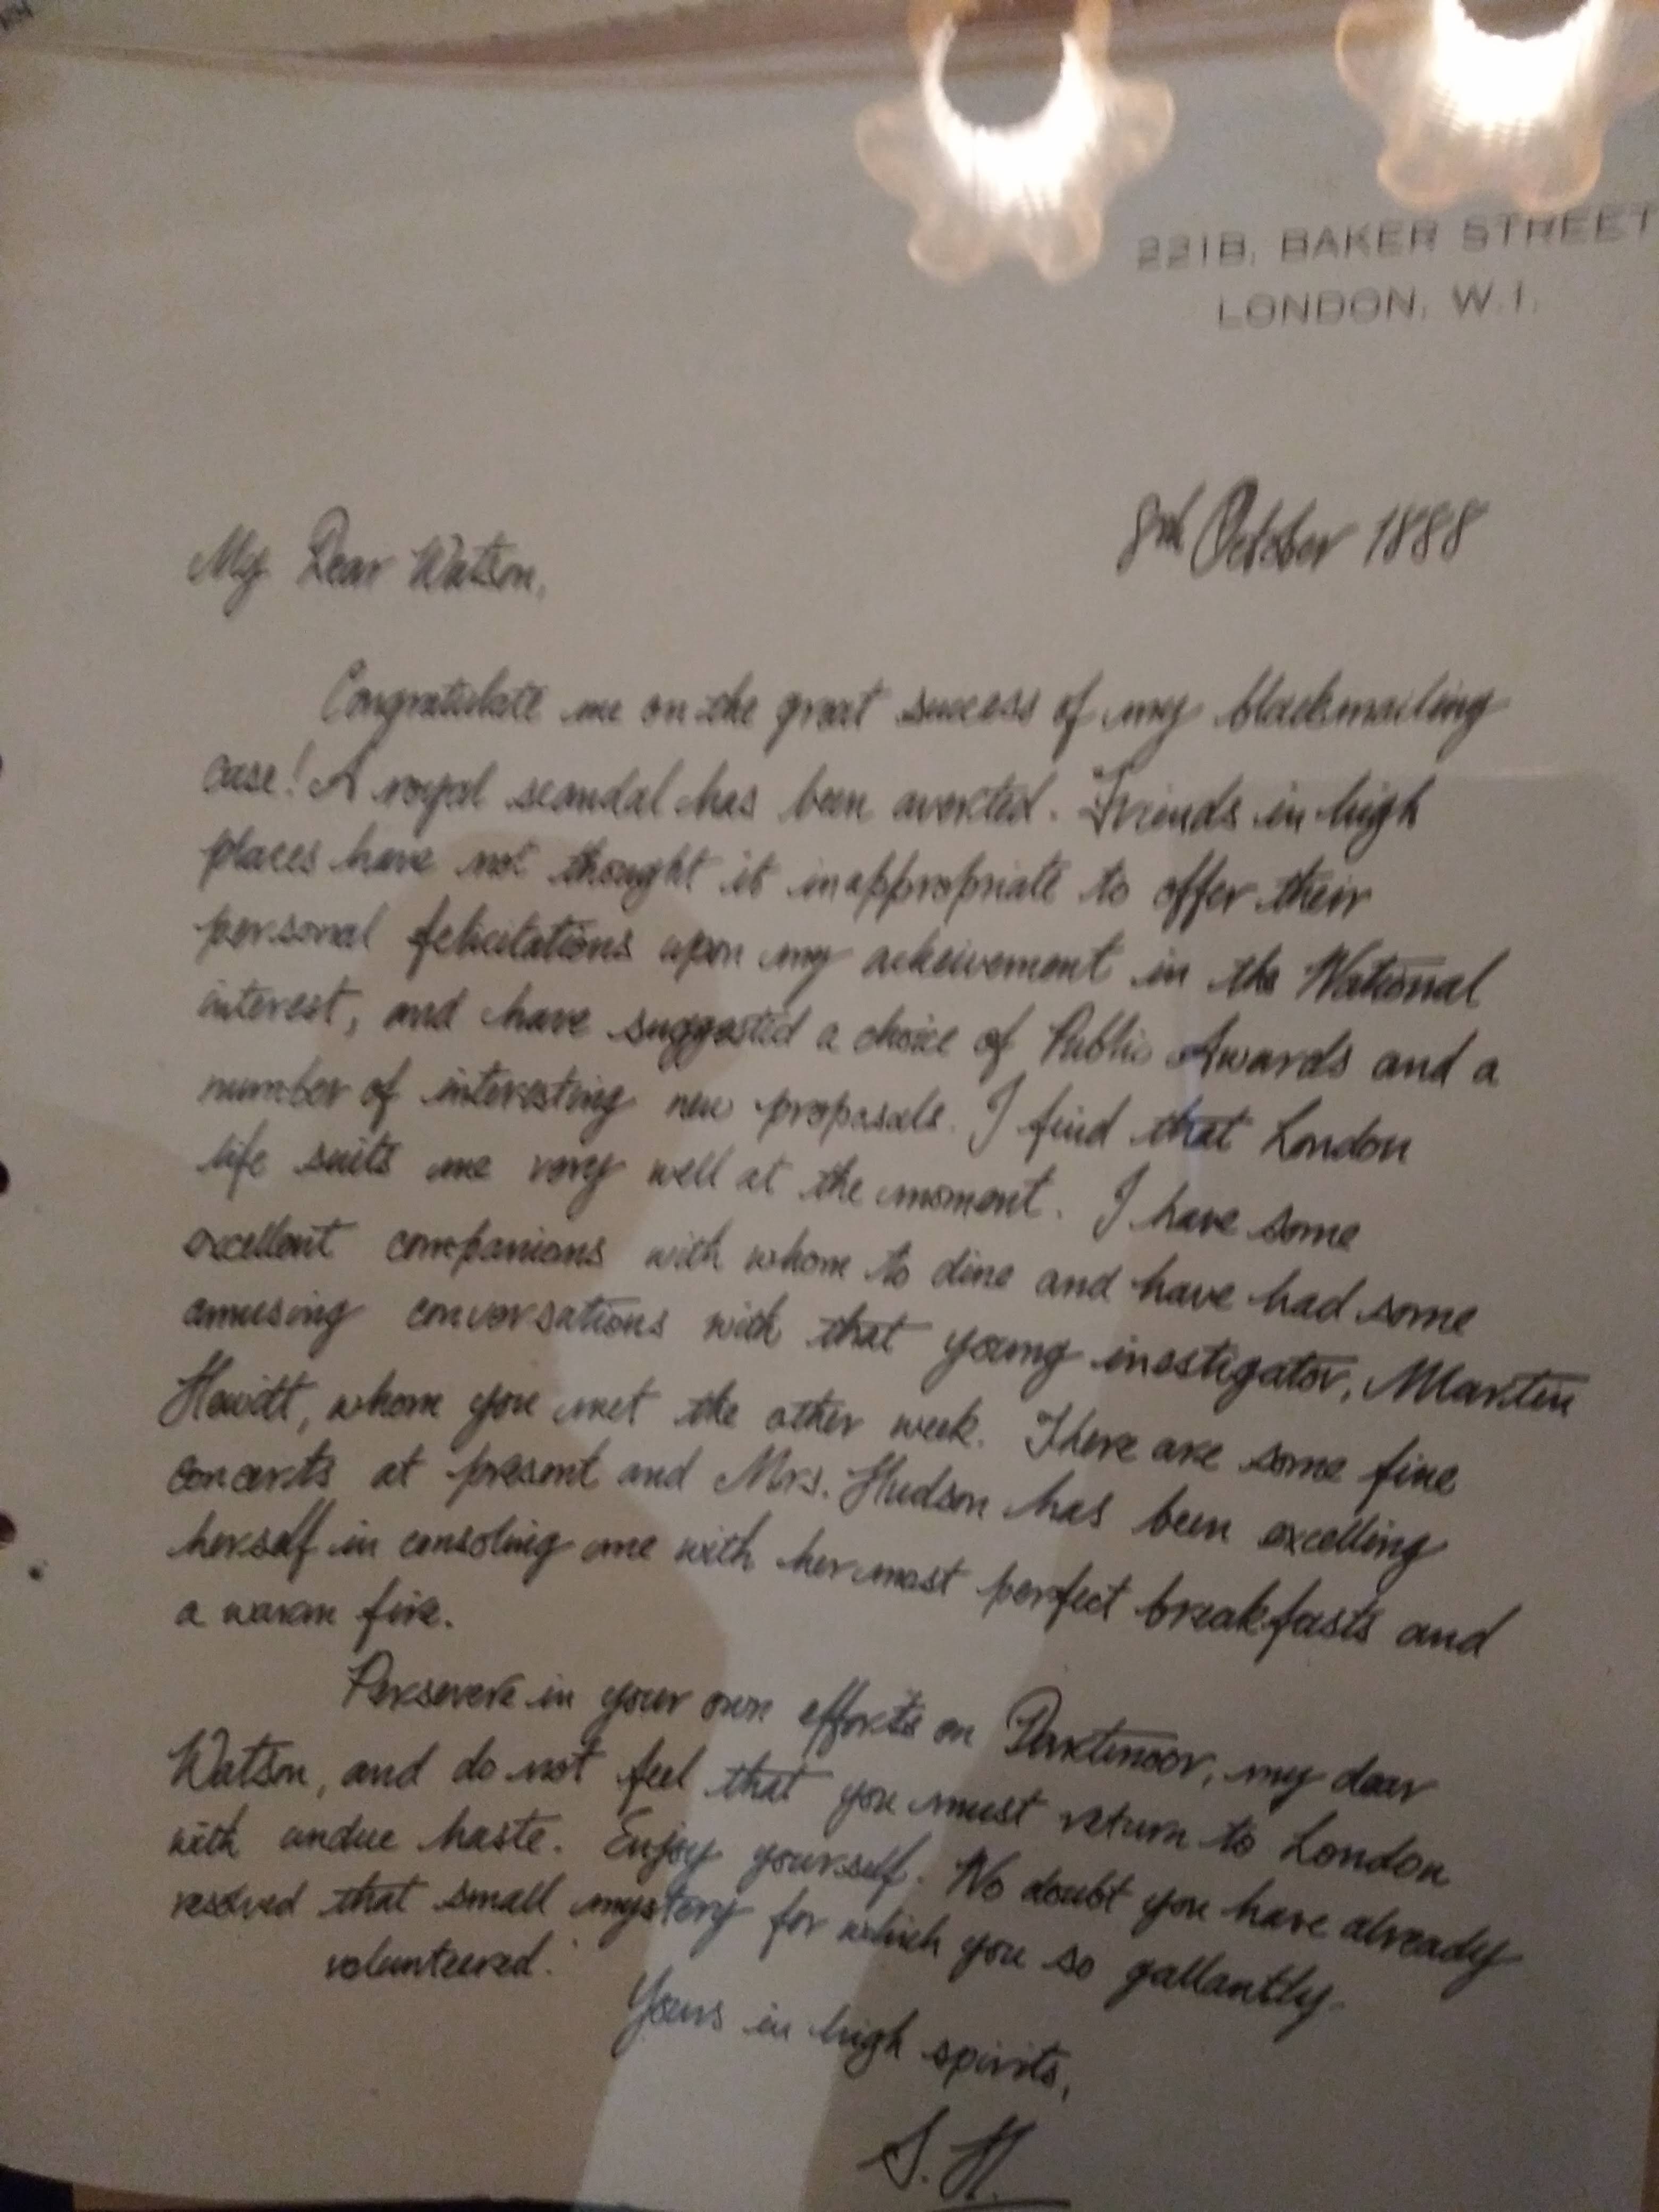 221B, BAKER STREET
LONDON, W.1.
8th October 1888
My Dear Watson,
Congratulate me on the great success of my blackmailing
case! A royal scandal has been averted. Friends in high
places have not thought it inappropriate to offer their
personal felicitations upon my acheivement in the National
interest, and have suggested a choice of Public Awards and a
number of interesting new proposals. I find that London
life suits me very well at the moment. I have some
excellent companions with whom to dine and have had some
amusing conversations with that young inestigator, Martin
Hewitt, whom you met the other week. There are some fine
concerts at present and Mrs. Hudson has been excelling
herself in consoling me with her most perfect breakfasts and
a warm fire.
Persevere in your own efforts on Dartmoor, my dear
Watson, and do not feel that you must return to London
with undue haste. Enjoy yourself. No doubt you have already
resolved that small mystery for which you so gallantly
volunteered.
Yours in high spirits,
S. H.